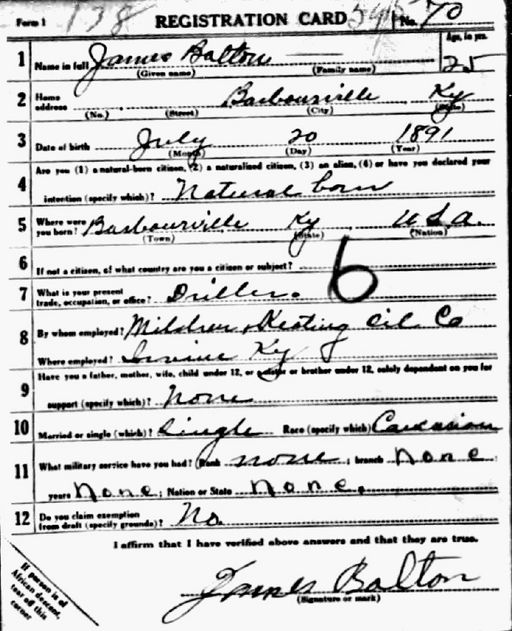 Form 1 138 REGISTRATION CARD No. 70
Age, in yrs.
1 Name in full James Balton 25
(Given name) (Family name)
2 Home address Barbourville Ky
(No.) (Street) (City) (State)
3 Date of birth July 20 1891
(Month) (Day) (Year)
Are you (1) a natural-born citizen, (2) a naturalized citizen, (3) an alien, (4) or have you declared your
4 intention (specify which)? Natural born
5 Where were you born? Barbourville Ky U.S.A.
(Town) (State) (Nation)
6 If not a citizen, of what country are you a citizen or subject?
6
7 What is your present trade, occupation, or office? Driller.
8 By whom employed? & Keating Oil Co
Where employed? Irvine Ky
9 Have you a father, mother, wife, child under 12, or a sister or brother under 12, solely dependent on you for
support (specify which)? None
10 Married or single (which)? Single Race (specify which) Caucasian
11 What military service have you had? Rank none ; branch None
years None ; Nation or State None.
12 Do you claim exemption from draft (specify grounds)? No.
I affirm that I have verified above answers and that they are true.
James Balton
(Signature or mark)
If person is of
African descent,
tear off this
corner